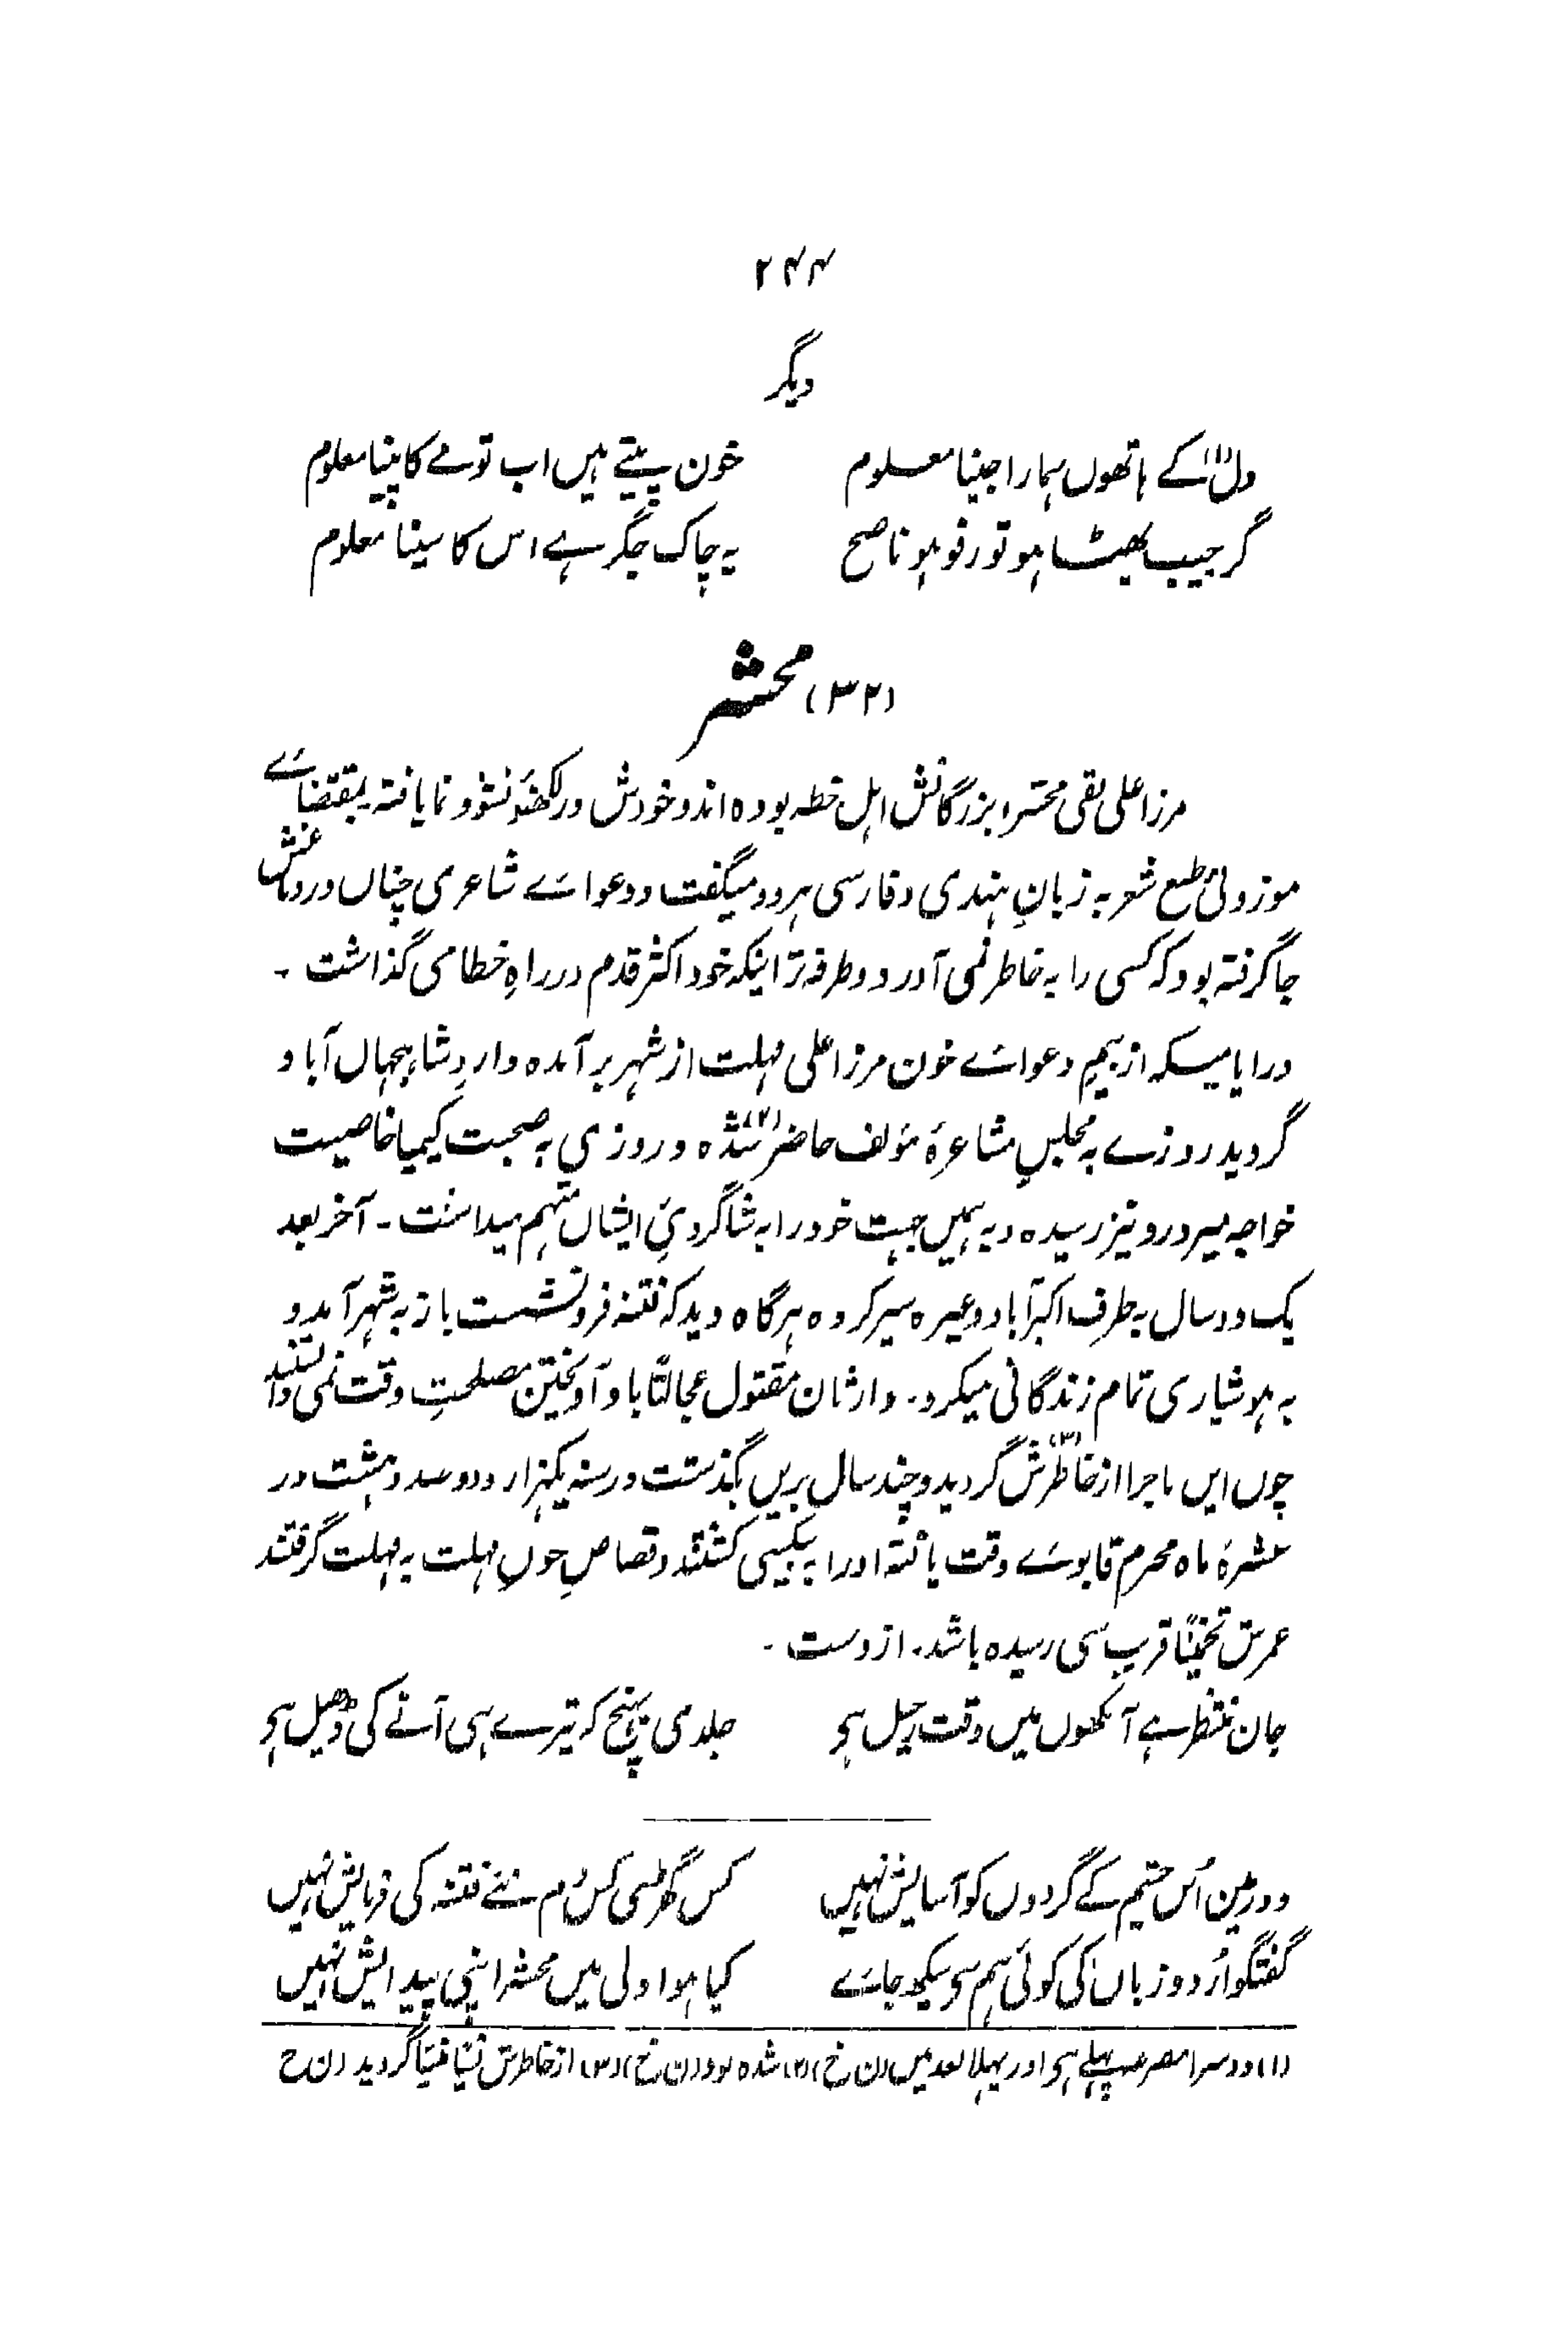 ۲۴۴
دیگر
دل(۱) کے ہاتھوں ہمارا جینا معلوم خون پیتے ہیں اب تو مے کا پینا معلوم
گر جیب پھٹا ہو تو رفو ہو ناصح یہ چاک جگر ہے اس کا سینا معلوم
(۳۲) محشر
مرزا علی نقی محشر، بزرگانش اہل خطہ بودہ اند و خودش در لکھنؤ نشو و نما یافتہ بمقتضائے
موزونیٔ طبع شعر بہ زبانِ ہندی و فارسی ہر دو میگفت و دعوائے شاعری چناں در دماغش
جا گرفتہ بود کہ کسی را بہ خاطر نمی آورد و طرفہ تر اینکہ خود اکثر قدم در راہِ خطا می گذاشت ۔
در ایامیکہ از بیمِ دعوائے خون مرزا علی مہلت از شہر بر آمدہ واردِ شاہجہاں آباد
گردید روزے بہ مجلسِ مشاعرۂ مؤلف حاضر شدہ(۲) و روزی بہ صحبت کیمیا خاصیت
خواجہ میر درد نیز رسیدہ و بہ ہمیں جہت خود را بہ شاگردیِ ایشاں متہم میدانست ۔ آخر بعد
یک دو سال بہ طرفِ اکبر آباد وغیرہ سیر کردہ ہر گاہ دید کہ فتنہ فرو نشست باز بہ شہر آمد و
بہ ہوشیاری تمام زندگانی میکرد ۔ وارثان مقتول عجالتاً با و آویختن مصلحتِ وقت نمی دانستند
چوں ایں ماجرا از خاطرش(۳) گردید و چند سال بریں بگذشت در سنہ یکہزار و دوصد و ہشت در
عشرۂ ماہ محرم قابوئے وقت یافتہ او را بہ بیکسی کشتند و قصاصِ خونِ مہلت بہ مہلت گرفتند
عمرش تخمیناً قریب سی رسیدہ باشد ۔ از وست ۔
جان منتظر ہے آنکھوں میں وقت رحیل ہی جلدی پہنچ کہ تیرے ہی آنے کی ڈھیل ہی
دور میں اُس چشم کے گردوں کو آسایش نہیں کس گھڑی کس دم نئے فتنہ کی فرمایش نہیں
گفتگو اُردو زباں کی کوئی ہم سے سیکھ جائے کیا ہوا دلی میں محشر اپنی پیدایش نہیں
(۱) دوسرا مصرعہ پہلے ہی اور پہلا بعد میں (ن خ) (۲) شدہ بود (ن خ) (۳) از خاطرش نسیاً منسیاً گردید (ن خ)